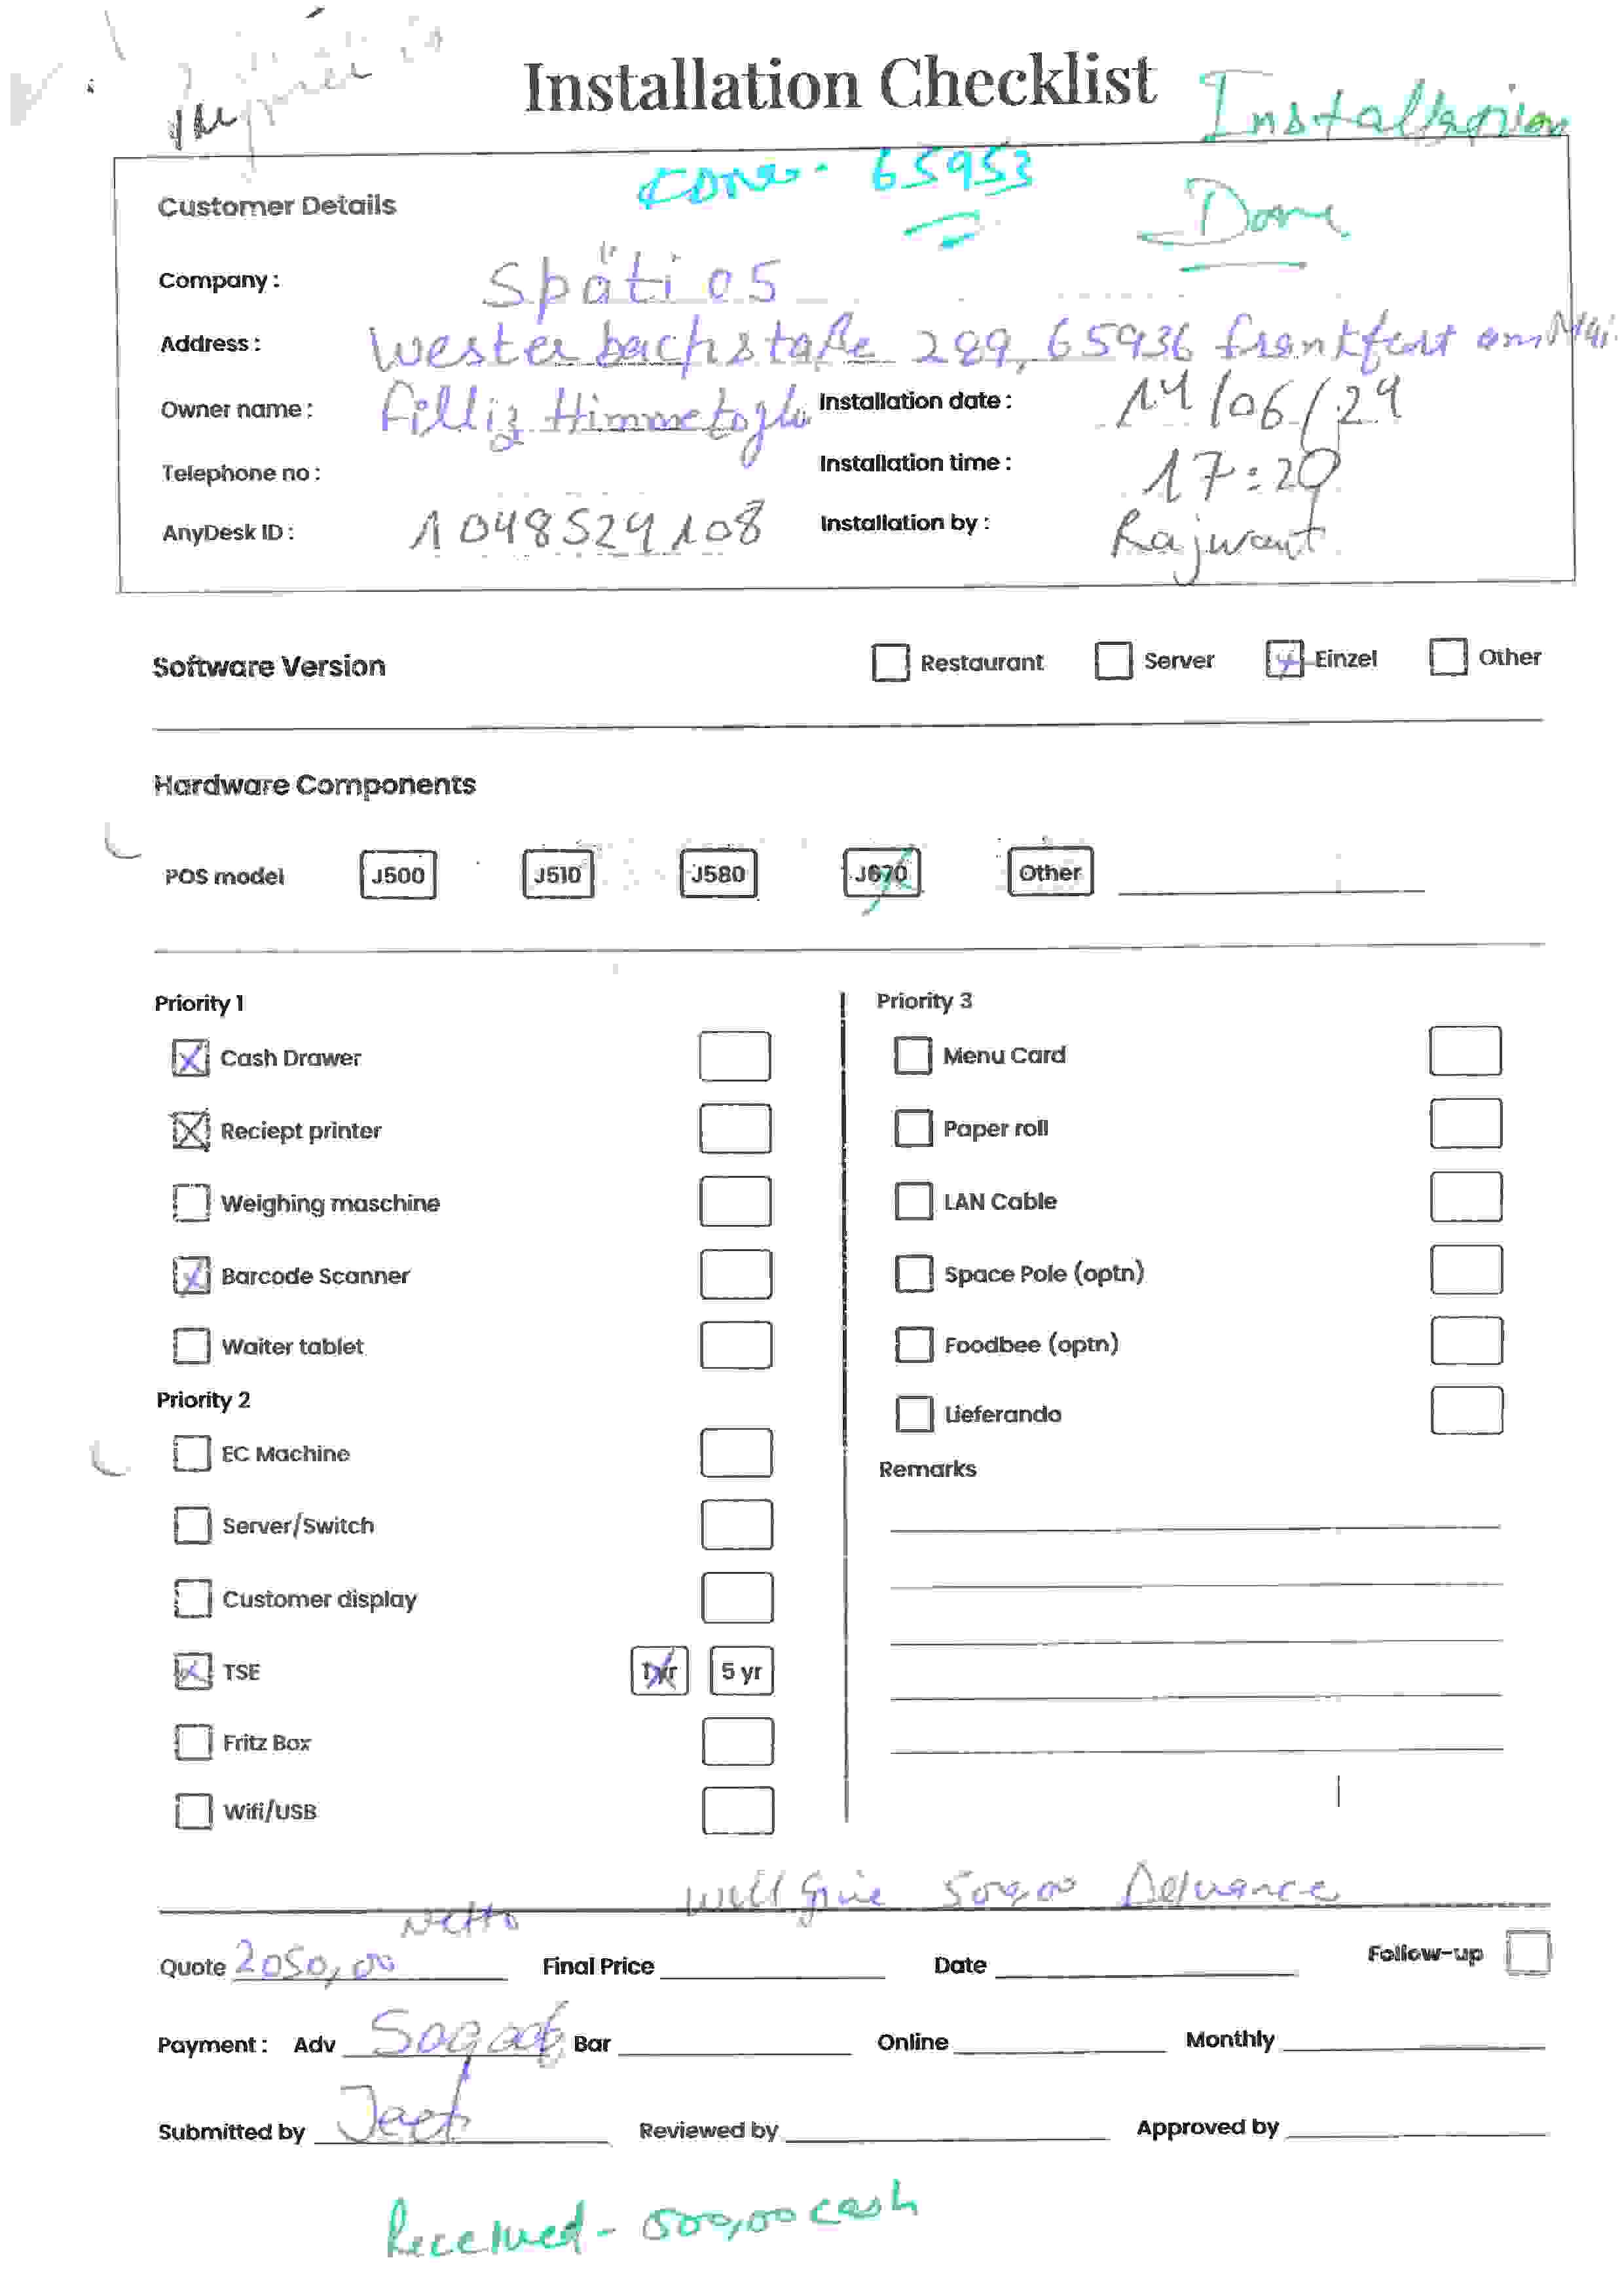 Installation Checklist
Installation
Done
65953
Customer Details
Company : Späti 05
Address : Westerbachstaße 289, 65936 frankfurt am Mai
Owner name : Filliz Himmetoglu Installation date : 14/06/24
Telephone no : Installation time : 17:20
AnyDesk ID : 1048529108 Installation by : Rajwant
Software Version Restaurant Server Einzel Other
Hardware Components
POS model J500 J510 J580 J670 Other
Priority 1
Cash Drawer
Reciept printer
Weighing maschine
Barcode Scanner
Waiter tablet
Priority 2
EC Machine
Server/Switch
Customer display
TSE 1 yr 5 yr
Fritz Box
Wifi/USB
Priority 3
Menu Card
Paper roll
LAN Cable
Space Pole (optn)
Foodbee (optn)
Lieferando
Remarks
will give 500,00 Advance
Netto
Quote 2050,00 Final Price Date Follow-up
Payment : Adv Bar Online Monthly
Submitted by Reviewed by Approved by
Received - 500,00 cash